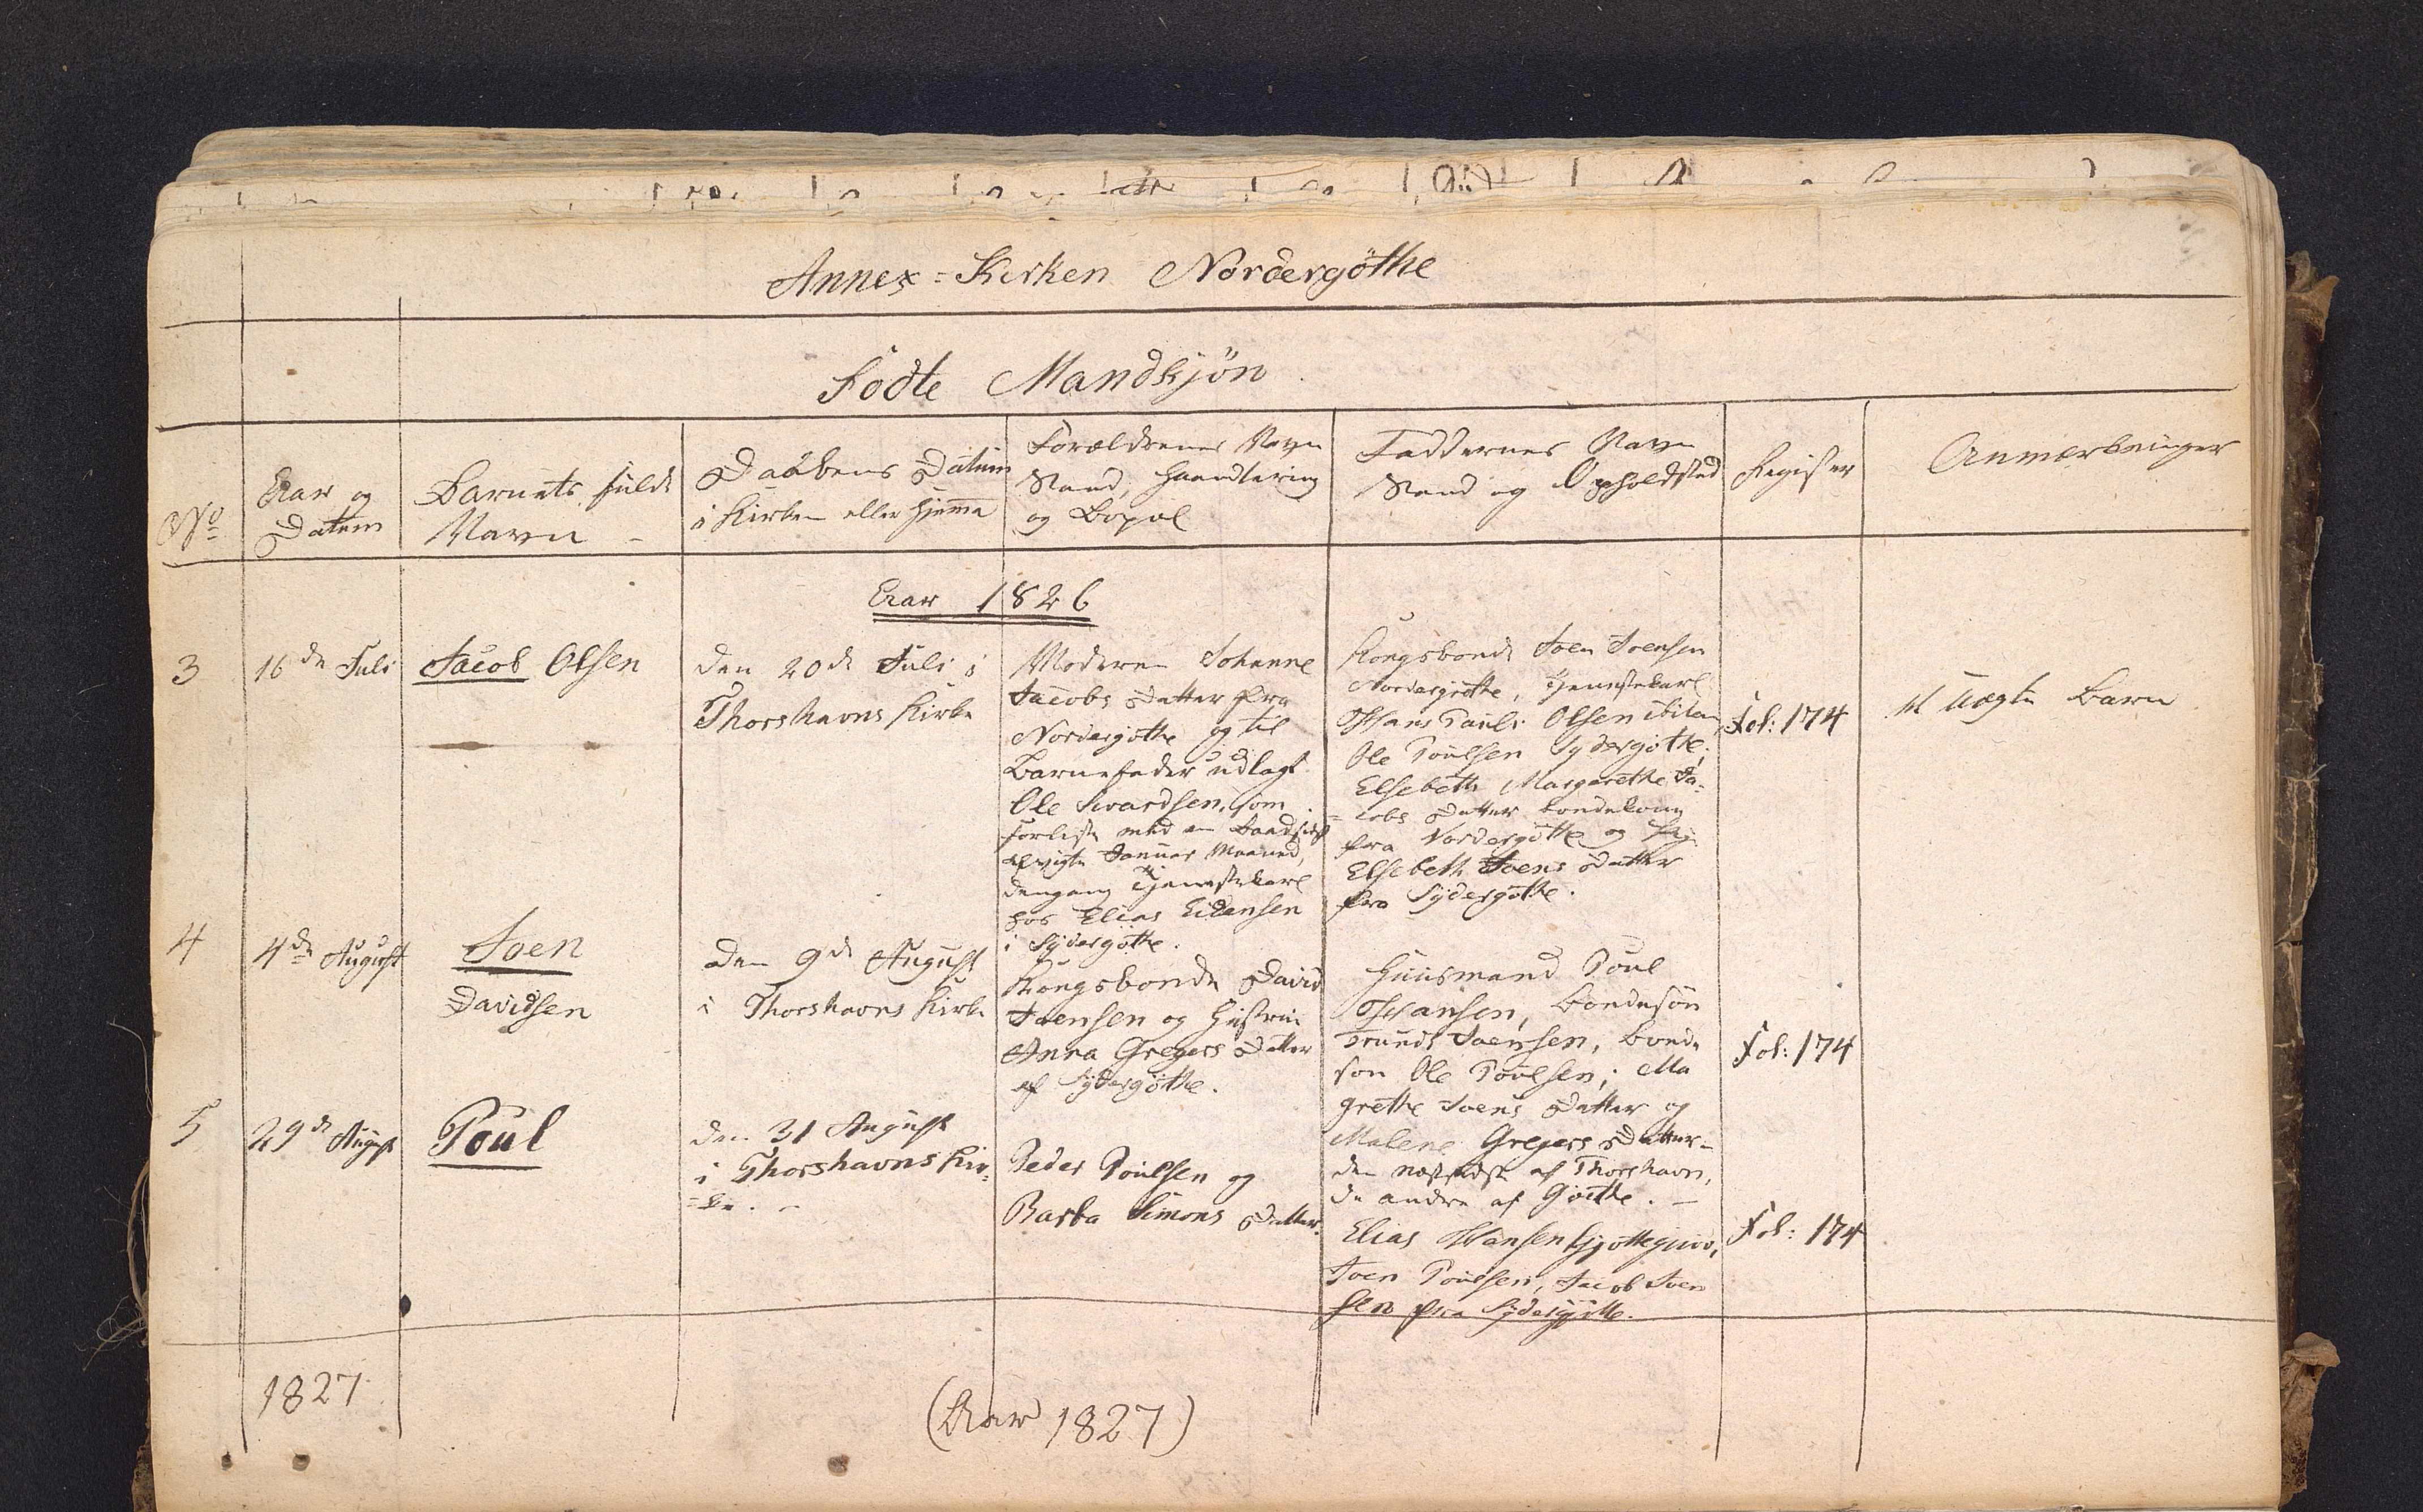 Annex-Kirken Nordergöthe
Födte Mandkjön.
No
Aar og
Datum
Barnets fulde
Navn
Daabens Datum
i Kirken eller hjemme
Forældrenes Navn
Stand, Haandtering
og Bopæl
Faddernes Navn
Stand og Opholdsted
Register
Anmærkninger
Aar 1826
3
16de Juli
Jacob Olsen
den 20de Juli i
Thorshavns Kirke
Moderen Johanne
Jacobs Datter fra
Nordergöthe og til
Barnefader udlagt
Ole Sivardsen, som
forliste med en Baad sidst
afvigte Januar Maaned,
dengang Tjenestekarl
hos Elias
i Sydergöthe.
Kongsbonde Joen Joensen
Nordergöthe, Tjenestekarl
Hans Pauli Olsen ibidem
Ole Poulsen Sydergöthe;
Elsebeth Margarethe Ja-
=cobs Datter Bondekone
fra Nordergöthe og Pig
Elsebeth Joens Datter
fra Sydergöthe.
Fol: 174
uægte Barn
4
4de August
Joen
Davidsen
Den 9de August
i Thorshavns Kirke
Kongsbonde David
Joensen og Hustrue
Anna Gregers Datter
af Sydergöthe.
Huusmand Poul
Hansen, Bondesön
Trund Joensen, Bonde
sön Ole Poulsen; Ma
grethe Joens Datter og
Malene Gregers Datter -
den næstsidste af Thorshavn,
de andre af Göthe. -
Fol: 174
5
29de August
Poul
den 31 August
i Thorshavns Kir-
=ke. -
Peder Poulsen og
Barba Simons Datter.
Elias Hansen
Joen Poulsen, Jacob Joen
sen fra Sydergöthe.
Fol: 174
1827
(Aar 1827)